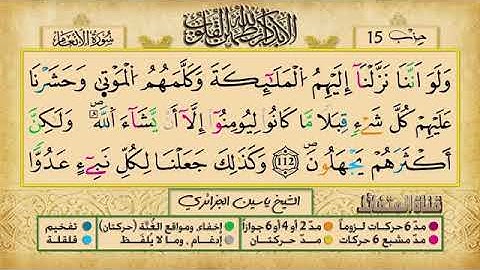 حزب 15
ألا بذكر الله تطمئن القلوب
سورة الأنعام
وَلَوَ اَنَّنَا نَزَّلْنَآ إِلَيْهِمُ الْمَلَٰٓئِكَةَ وَكَلَّمَهُمُ الْمَوْتٰي وَحَشَرْنَا
عَلَيْهِمْ كُلَّ شَےْءٖ قِبَلاٗ مَّا كَانُواْ لِيُومِنُوٓاْ إِلَّآ أَنْ يَّشَآءَ اَللَّهُۖ وَلَٰكِنَّ
أَكْثَرَهُمْ يَجْهَلُونَۖ 112 وَكَذَٰلِكَ جَعَلْنَا لِكُلِّ نَبِےٓءٍ عَدُوّاٗ
الشيخ ياسين الجزائري
مدّ 6 حركات لزوماً مدّ 2 أو 4 أو 6 جوازاً إخفاء، ومواقع الغُنَّة (حركتان) تفخيم
مدّ مشبع 6 حركات مدّ حركتان إدغام، وما لا يُلفَظ قلقلة